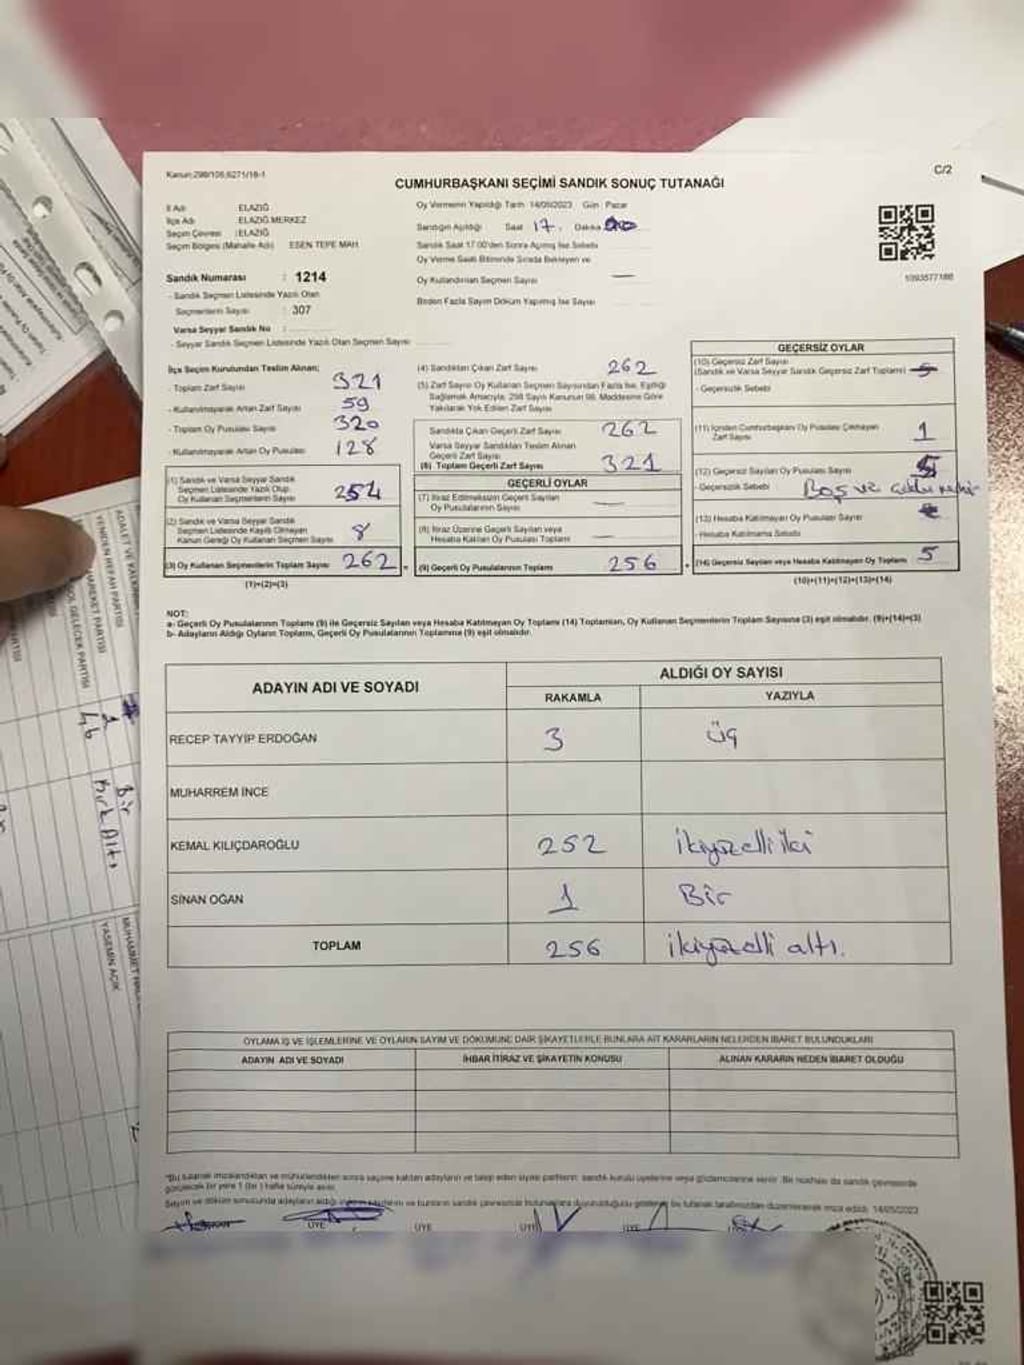 Kanun:298/105,6271/16-1
C/2
CUMHURBAŞKANI SEÇİMİ SANDIK SONUÇ TUTANAĞI
İl Adı ELAZIĞ
İlçe Adı ELAZIĞ MERKEZ
Seçim Çevresi :ELAZIĞ
Seçim Bölgesi (Mahalle Adı) ESENTEPE MAH
Sandık Numarası : 1214
- Sandık Seçmen Listesinde Yazılı Olan
Seçmenlerin Sayısı : 307
Varsa Seyyar Sandık No :
- Seyyar Sandık Seçmen Listesinde Yazılı Olan Seçmen Sayısı
Oy Vermenin Yapıldığı Tarih 14/05/2023 Gün : Pazar
Sandığın Açıldığı Saat 17. Dakika
Sandık Saat 17:00'den Sonra Açılmış İse Sebebi
Oy Verme Saati Bitiminde Sırada Bekleyen ve
Oy Kullandırılan Seçmen Sayısı —
Birden Fazla Sayım Döküm Yapılmış İse Sayısı
1093577186
İlçe Seçim Kurulundan Teslim Alınan;
- Toplam Zarf Sayısı 321
- Kullanılmayarak Artan Zarf Sayısı 59
- Toplam Oy Pusulası Sayısı 320
- Kullanılmayarak Artan Oy Pusulası 128
(1) Sandık ve Varsa Seyyar Sandık
Seçmen Listesinde Yazılı Olup
Oy Kullanan Seçmenlerin Sayısı 254
(2) Sandık ve Varsa Seyyar Sandık
Seçmen Listesinde Kayıtlı Olmayan
Kanun Gereği Oy Kullanan Seçmen Sayısı 8
(3) Oy Kullanan Seçmenlerin Toplam Sayısı 262
(1)+(2)=(3)
(4) Sandıktan Çıkan Zarf Sayısı 262
(5) Zarf Sayısı Oy Kullanan Seçmen Sayısından Fazla İse, Eşitliği
Sağlamak Amacıyla, 298 Sayılı Kanunun 98. Maddesine Göre
Yakılarak Yok Edilen Zarf Sayısı
Sandıkta Çıkan Geçerli Zarf Sayısı 262
Varsa Seyyar Sandıktan Teslim Alınan
Geçerli Zarf Sayısı
(6) Toplam Geçerli Zarf Sayısı 321
GEÇERLİ OYLAR
(7) İtiraz Edilmeksizin Geçerli Sayılan
Oy Pusulalarının Sayısı —
(8) İtiraz Üzerine Geçerli Sayılan veya
Hesaba Katılan Oy Pusulaları Toplamı —
(9) Geçerli Oy Pusulalarının Toplamı 256
GEÇERSİZ OYLAR
(10) Geçersiz Zarf Sayısı
(Sandık ve Varsa Seyyar Sandık Geçersiz Zarf Toplamı)
- Geçersizlik Sebebi
(11) İçinden Cumhurbaşkanı Oy Pusulası Çıkmayan
Zarf Sayısı 1
(12) Geçersiz Sayılan Oy Pusulası Sayısı 5
- Geçersizlik Sebebi Boş ve
(13) Hesaba Katılmayan Oy Pusulası Sayısı
- Hesaba Katılmama Sebebi
(14) Geçersiz Sayılan veya Hesaba Katılmayan Oy Toplamı 5
(10)+(11)+(12)+(13)=(14)
NOT:
a- Geçerli Oy Pusulalarının Toplamı (9) ile Geçersiz Sayılan veya Hesaba Katılmayan Oy Toplamı (14) Toplamları, Oy Kullanan Seçmenlerin Toplam Sayısına (3) eşit olmalıdır. (9)+(14)=(3)
b- Adayların Aldığı Oyların Toplamı, Geçerli Oy Pusulalarının Toplamına (9) eşit olmalıdır.
ADAYIN ADI VE SOYADI ALDIĞI OY SAYISI
RAKAMLA YAZIYLA
RECEP TAYYİP ERDOĞAN 3 Üç
MUHARREM İNCE
KEMAL KILIÇDAROĞLU 252 ikiyüzelliiki
SİNAN OĞAN 1 Bir
TOPLAM 256 ikiyüzelli altı.
OYLAMA İŞ VE İŞLEMLERİNE VE OYLARIN SAYIM VE DÖKÜMÜNE DAİR ŞİKAYETLERLE BUNLARA AİT KARARLARIN NELERDEN İBARET BULUNDUKLARI
ADAYIN ADI VE SOYADI İHBAR İTİRAZ VE ŞİKAYETİN KONUSU ALINAN KARARIN NEDEN İBARET OLDUĞU
*Bu tutanak imzalandıktan ve mühürlendikten sonra seçime katılan adayların ve talep eden siyasi partilerin sandık kurulu üyelerine veya gözlemcilerine verilir. Bir nüshası da sandık çevresinde
görülecek bir yere 1 (bir) hafta süreyle asılır.
Sayım ve döküm sonucunda adayların aldığı ve bunların sandık çevresinde bulunanlara duyurulduğunu gösteren bu tutanak tarafımızdan düzenlenerek imza edildi. 14/05/2023
ÜYE ÜYE ÜYE ÜYE
ADALET VE KALKINMA
YENİDEN REFAH PARTİSİ
HAREKET PARTİSİ
SOL GELECEK PARTİSİ
PARTİSİ
1 Bir
46 Kırk Altı
MUHAMMET
YASEMİN AÇIK